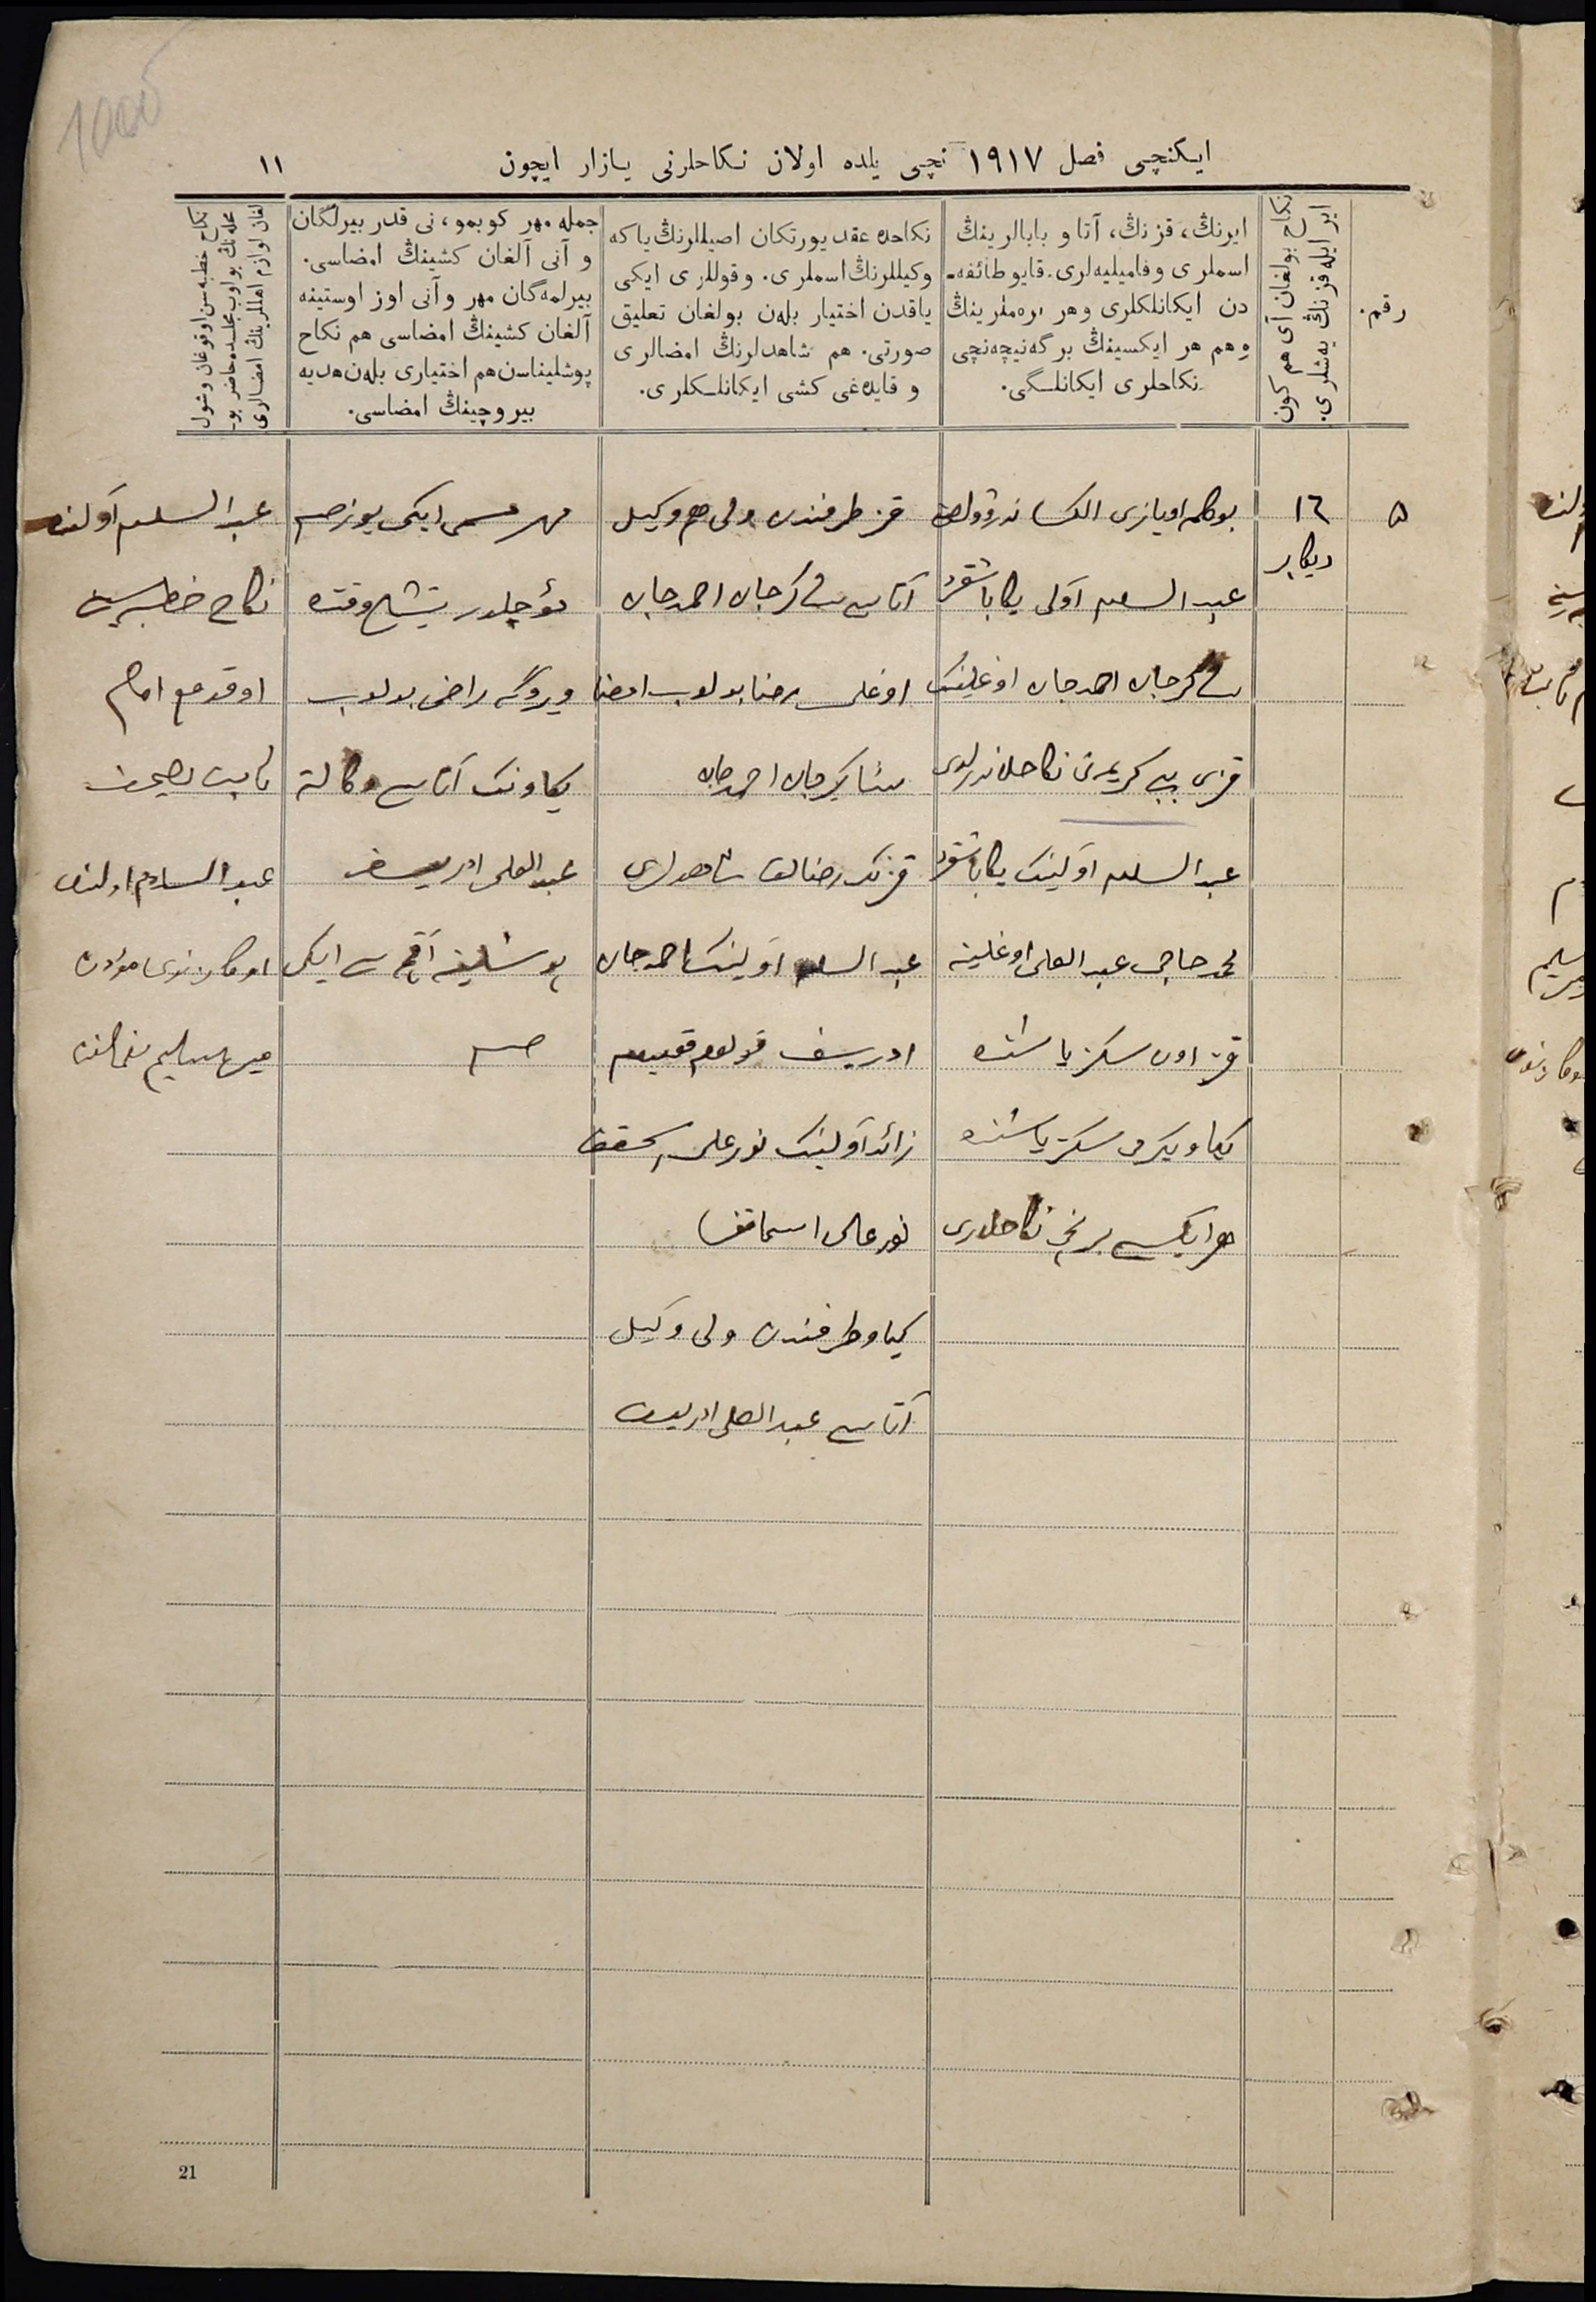 ایکنچی فصل ١٩١٧ نچی یلده اولان نکاحلرنی یازار ایچون
١١
رقم.
نکاح بولغان آی هم کون
ایر ایله قزنڭ یەشلری.
ایرنڭ، قزنڭ، آتا و بابالرینڭ
اسملری و فامیلیەلری. قایو طائفه-
دن ایکانلکلری وهر ایرەملرینڭ
وهم هر ایکسینڭ برگەنیچەنچی
نکاحلری ایکانلگی.
نکاحده عقد یورتکان اصیللرنڭ یا که
وکیللرنڭ اسملری. وقوللری ایکی
یاقدن اختیار بلەن بولغان تعلیق
صورتی. هم شاهدلرنڭ امضالری
و قایداغی کشی ایکانلکلری.
جمله مهر کوبمو، نی قدر بیرلگان
و آنی آلغان کشینڭ امضاسی.
بیرلمەگان مهر و آنی اوز اوستینه
آلغان کشینڭ امضاسی هم نکاح
پوشلیناسن هم اختیاری بلەن هدیه
بیروچینڭ امضاسی.
نکاح خطبەسن اوقوغان وشول
محلەنڭ بو اوب مجلسده حاضر بو-
لغان لوازم اهللرینڭ امضالری
٥
١٦
دیکابر
بوکلمه اویازی الکساندروولص
عبد السلام آولی یکا باشقرد
شاکرجان احمدجان اوغلینک
قزی بیبی کریمه نی نکاحلاندرلدی
عبد السلام اولینک یکا باشقرد
محمد حاجی عبد العلی اوغلینه
قز اون سکز یاشنده
کیاو یکرمی سکز یاشنده
هر ایکسی برنچی نکاحلاری
قز طرفندن ولی هم وکیل
آتاسی شاکرجان احمدجان
اوغلی رضا بولوب امضا
شاکرجان احمدجان
قزنک رضالق شاهدلری
عبد السلام اولینک احمدجان
ادریسف قولوم قویدم
زائد آولینک نورعلی اسحقف
نورعلی اسحاقف
کیاو طرفندن ولی وکیل
آتاسی عبد العلی ادریسف
مهر مسمی ایکی یوز صم
مؤجلدر یتشاچ وقتده
ویرورگه راضی بولوب
کیاونک آتاسی وکالة
عبد العلی ادریسف
پوشلینه آقچاسی ایکی
صم
عبد السلام آولنده
نکاح خطبه سین
اوقودم امام
ثابت
عبد السلام اولنده
مؤذن
میرسلیم
21